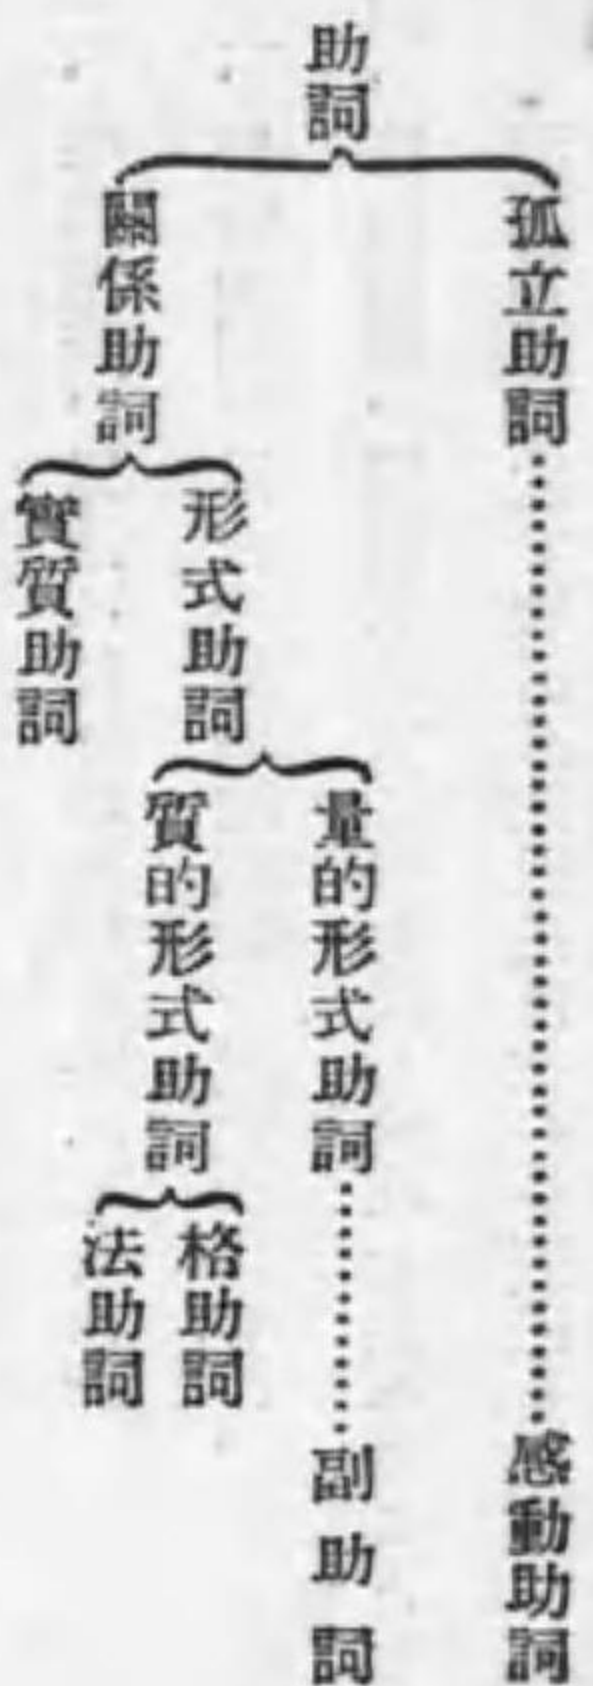 助詞
孤立助詞………感動助詞
關係助詞
形式助詞
量的形式助詞………副助詞
質的形式助詞
格助詞
法助詞
實質助詞